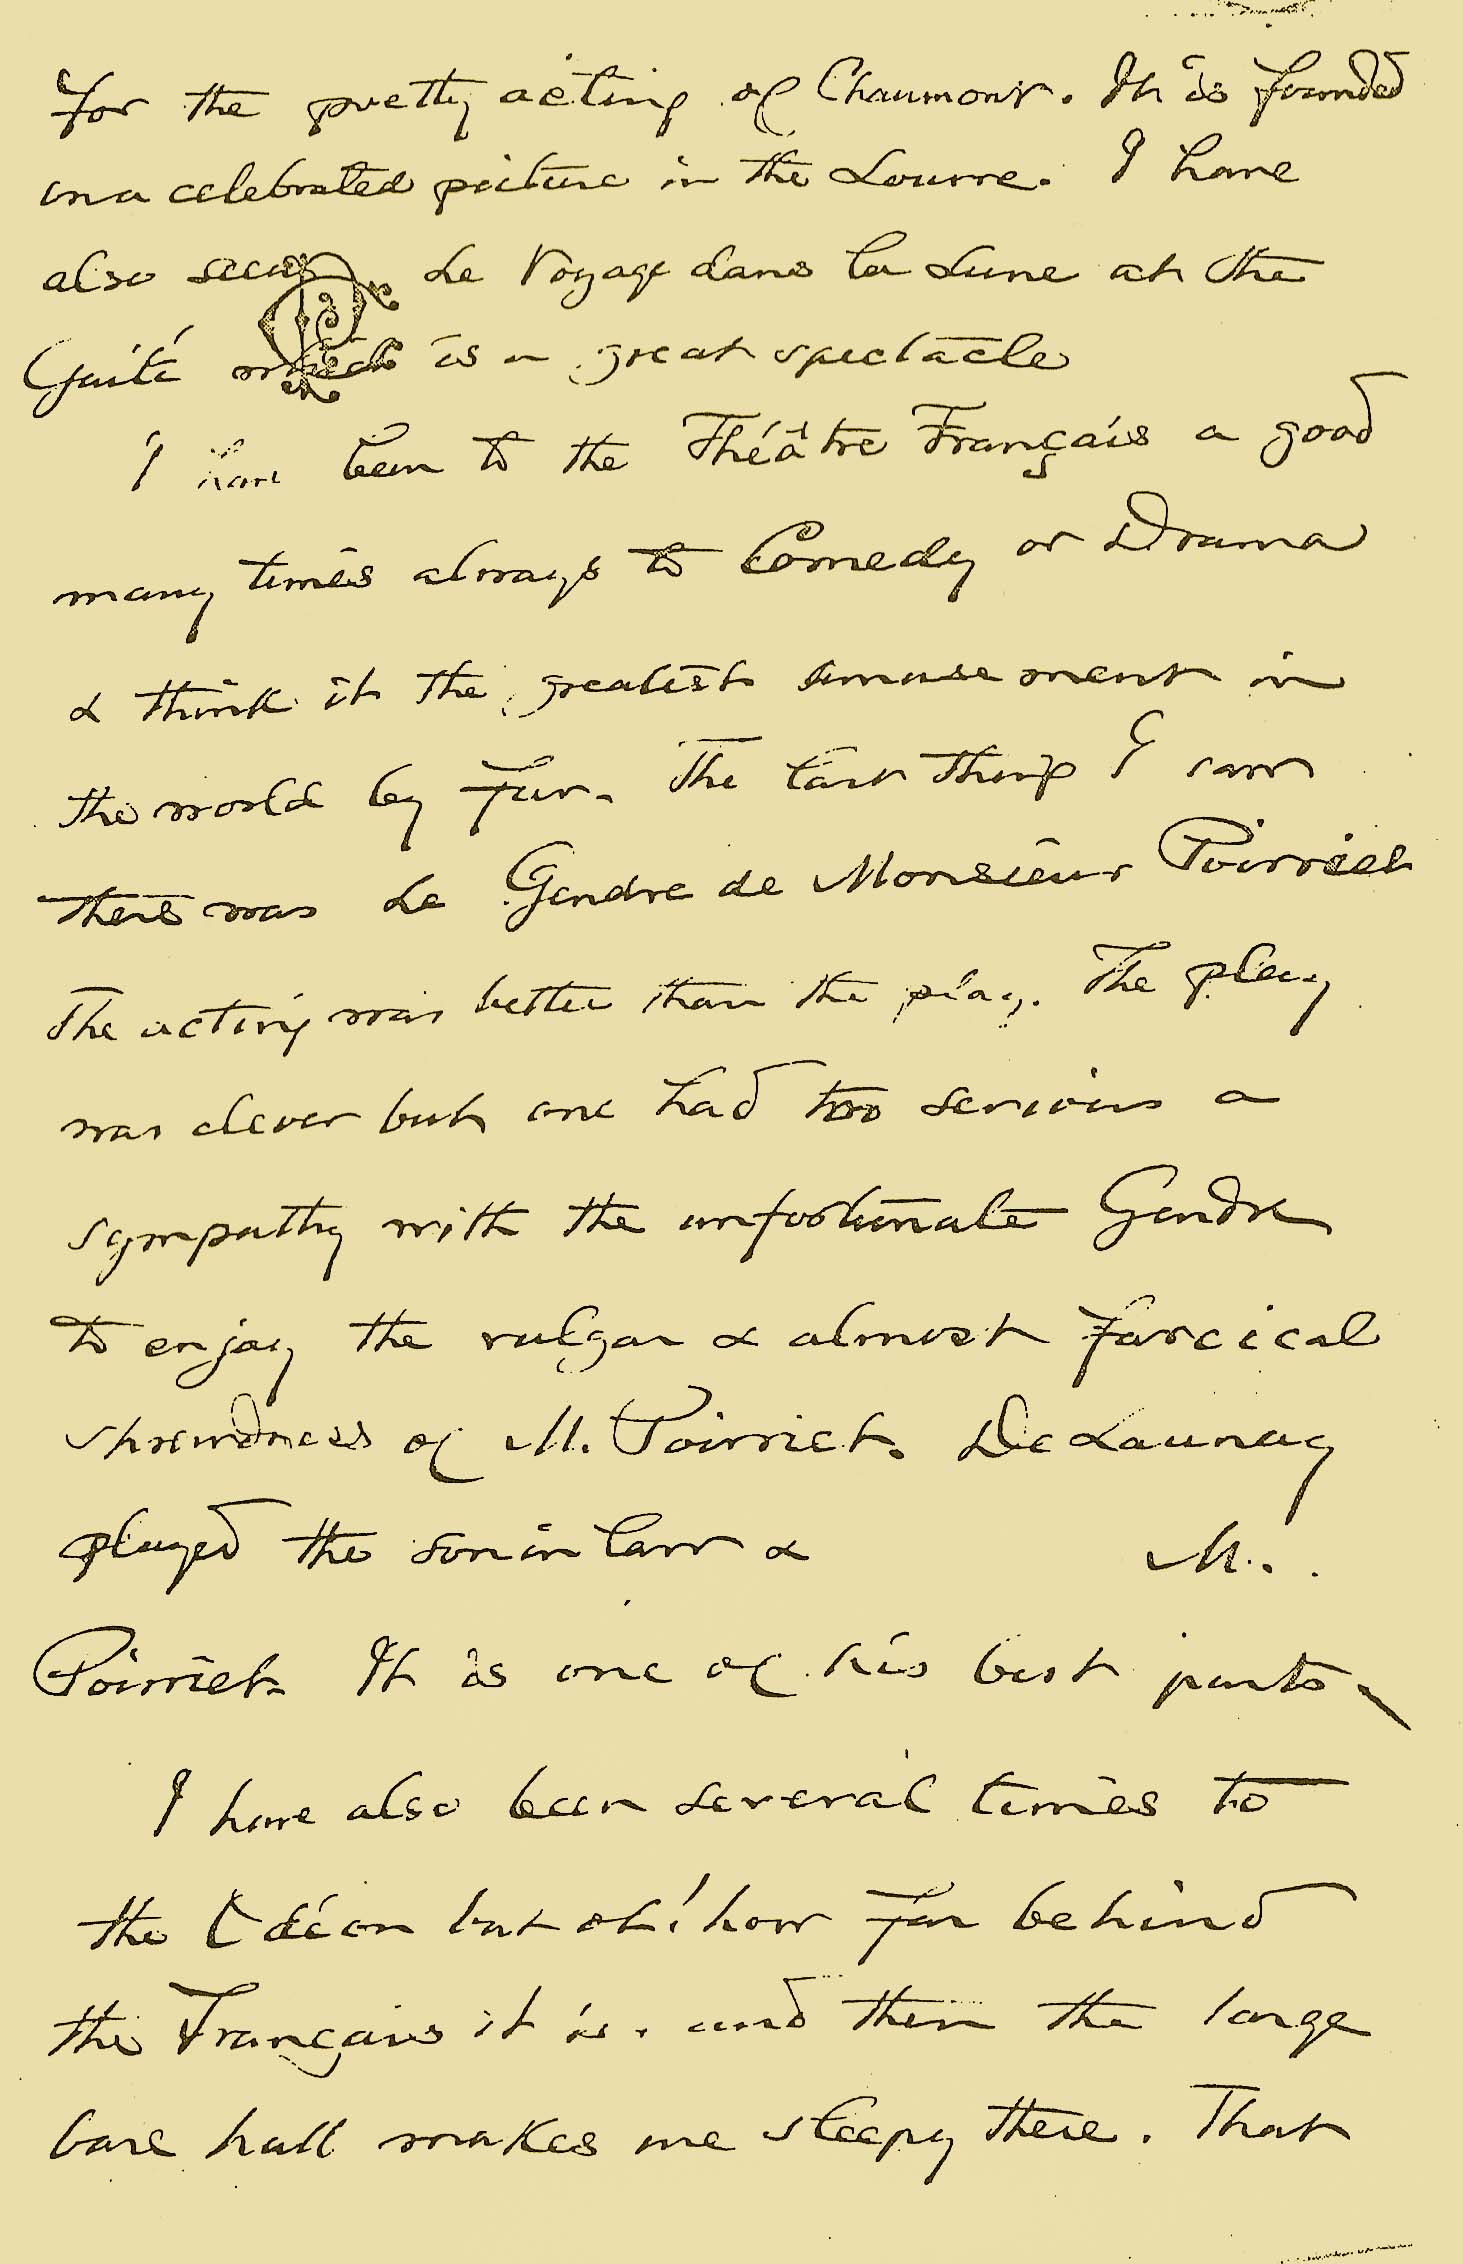 for the pretty acting of Chaumont. It is founded
on a celebrated picture in the Louvre. I have
also seen Le Voyage dans la Lune at the
Gaité which is a great spectacle
I have been to the Théâtre Français a good
many times always to Comedy or Drama
& think it the greatest amusement in
the world by far. The last thing I saw
there was Le Gendre de Monsieur Poirriet
The acting was better than the play. The play
was clever but one had too serious a
sympathy with the unfortunate Gendre
to enjoy the vulgar & almost farcical
shrewdness of M. Poirriet. De Launay
played the son in law & M.
Poirriet. It is one of his best parts.
I have also been several times to
the Odéon but oh! how far behind
the Français it is. and then the large
bare hall makes me sleepy there. That